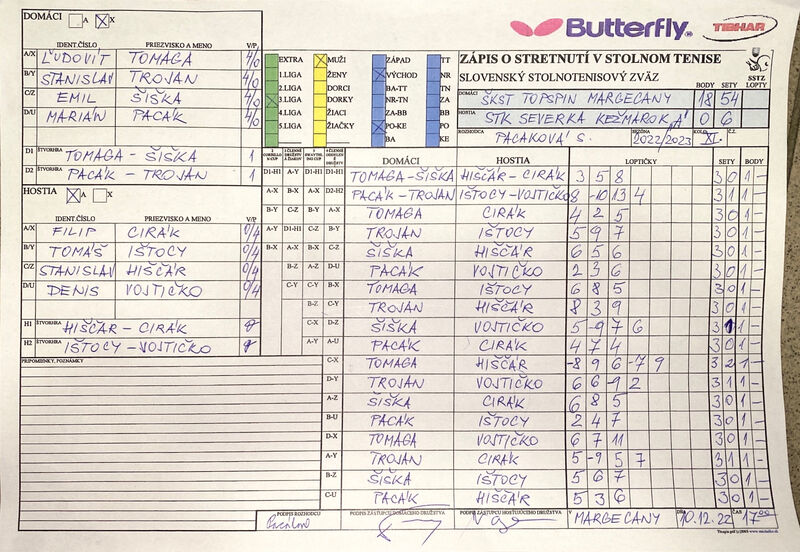 DOMÁCI A X
IDENT.ČÍSLO PRIEZVISKO A MENO V/P
A/X ĽUDOVÍT TOMAGA 4/0
B/Y STANISLAV TROJAN 4/0
C/Z EMIL ŠIŠKA 4/0
D/U MARIÁN PACÁK 4/0
D1 ŠTVORHRA TOMAGA - ŠIŠKA 1
D2 ŠTVORHRA PACÁK - TROJAN 1
HOSTIA A X
IDENT.ČÍSLO PRIEZVISKO A MENO V/P
A/X FILIP CIRÁK 0/4
B/Y TOMÁŠ IŠTOCY 0/4
C/Z STANISLAV HIŠČÁR 0/4
D/U DENIS VOJTIČKO 0/4
H1 ŠTVORHRA HIŠČÁR - CIRÁK
H2 ŠTVORHRA IŠTOCY - VOJTIČKO
PRIPOMIENKY, POZNÁMKY
Butterfly TIBHAR
EXTRA MUŽI ZÁPAD TT
1.LIGA ŽENY VÝCHOD NR
2.LIGA DORCI BA-TT TN
3.LIGA DORKY NR-TN ZA
4.LIGA ŽIACI ZA-BB BB
5.LIGA ŽIAČKY PO-KE PO
BA KE
ZÁPIS O STRETNUTÍ V STOLNOM TENISE
SLOVENSKÝ STOLNOTENISOVÝ ZVÄZ SSTZ
BODY SETY LOPTY
DOMÁCI ŠKST TOPSPIN MARGECANY 18 54
HOSTIA STK SEVERKA KEŽMAROK "A" 0 6
ROZHODCA PACÁKOVÁ S. SEZÓNA 2022/2023 KOLO XI. Č.
DOMÁCI HOSTIA LOPTIČKY SETY BODY
D1-H1 A-Y D1-H1 D1-H1 TOMAGA-ŠIŠKA HIŠČÁR-CIRÁK 3 5 8 3 0 1 -
A-X B-X A-X D2-H2 PACÁK-TROJAN IŠTOCY-VOJTIČKO 8 -10 13 4 3 1 1 -
B-Y C-Z B-Y A-X TOMAGA CIRÁK 4 2 5 3 0 1 -
A-Y D1-H1 C-Z B-Y TROJAN IŠTOCY 5 9 7 3 0 1 -
B-X A-X B-X C-Z ŠIŠKA HIŠČÁR 6 5 6 3 0 1 -
B-Z A-Z D-U PACÁK VOJTIČKO 2 3 6 3 0 1 -
C-Y C-Y B-X TOMAGA IŠTOCY 6 8 5 3 0 1 -
B-Z C-Y TROJAN HIŠČÁR 8 3 9 3 0 1 -
C-X D-Z ŠIŠKA VOJTIČKO 5 -9 7 6 3 1 1 -
A-Y A-U PACÁK CIRÁK 4 7 4 3 0 1 -
C-X TOMAGA HIŠČÁR -8 9 6 -7 9 3 2 1 -
D-Y TROJAN VOJTIČKO 6 6 -9 2 3 1 1 -
A-Z ŠIŠKA CIRÁK 6 8 5 3 0 1 -
B-U PACÁK IŠTOCY 2 4 7 3 0 1 -
D-X TOMAGA VOJTIČKO 6 7 11 3 0 1 -
A-Y TROJAN CIRÁK 5 -9 5 7 3 1 1 -
B-Z ŠIŠKA IŠTOCY 5 6 7 3 0 1 -
C-U PACÁK HIŠČÁR 5 3 6 3 0 1 -
PODPIS ROZHODCU PODPIS ZÁSTUPCU DOMÁCEHO DRUŽSTVA PODPIS ZÁSTUPCU HOSŤUJÚCEHO DRUŽSTVA V MARGECANY DŇA 10.12.22 ČAS 17:00